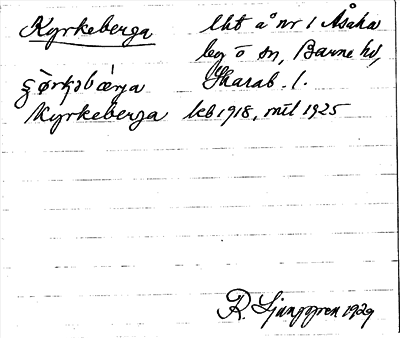 Kyrkeberga lht å nr 1 Åsaka
beg o sn, Barne hd,
Skarab. l.
Kyrkeberga kb 1918, mtl 1925
R. Ljunggren 1929